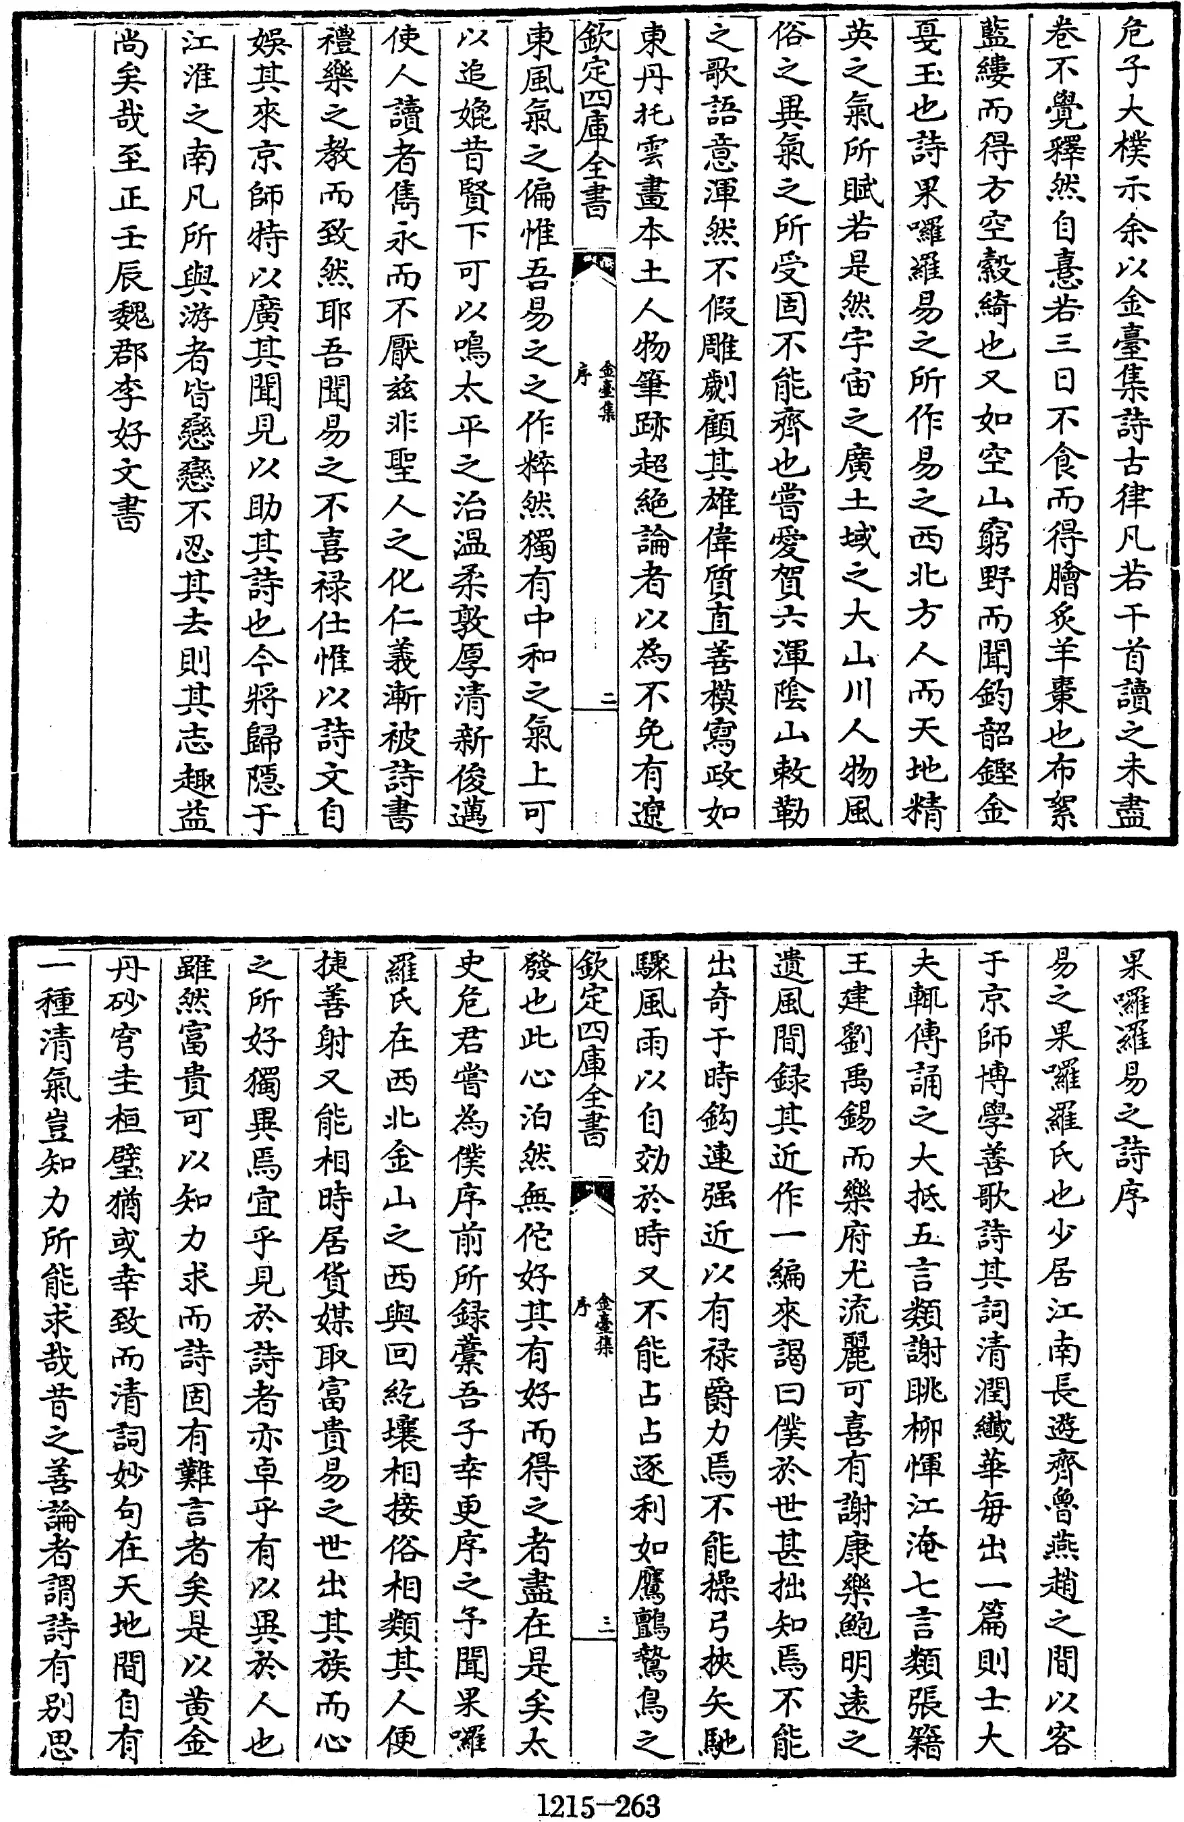 危子大樸示余以金臺集詩古律凡若干首讀之未盡
卷不覺釋然自憙若三日不食而得膾炙羊棗也布絮
藍縷而得方空縠綺也又如空山窮野而聞鈞韶鏗金
戛玉也詩果囉羅易之所作易之西北方人而天地精
英之氣所賦若是然宇宙之廣土域之大山川人物風
俗之異氣之所受固不能齊也嘗愛賀六渾陰山敕勒
之歌語意渾然不假雕劌顧其雄偉質直善模寫政如
東丹托雲畫本土人物筆跡超絶論者以為不免有遼
欽定四庫全書
金臺集
序
二
東風氣之偏惟吾易之之作粹然獨有中和之氣上可
以追媲昔賢下可以鳴太平之治温柔敦厚清新俊邁
使人讀者雋永而不厭兹非聖人之化仁義漸被詩書
禮樂之教而致然耶吾聞易之不喜禄仕惟以詩文自
娛其來京師特以廣其聞見以助其詩也今將歸隱于
江淮之南凡所與游者皆戀戀不忍其去則其志趣益
尚矣哉至正壬辰魏郡李好文書
果囉羅易之詩序
易之果囉羅氏也少居江南長遊齊魯燕趙之間以客
于京師博學善歌詩其詞清潤纎華每出一篇則士大
夫輒傳誦之大抵五言類謝眺柳惲江淹七言類張籍
王建劉禹錫而樂府尤流麗可喜有謝康樂鮑明遠之
遺風間録其近作一編來謁曰僕於世甚拙知焉不能
出奇于時鈎連强近以有禄爵力焉不能操弓挾矢馳
驟風雨以自効於時又不能占占逐利如鷹鸇鷙鳥之
欽定四庫全書
金臺集
序
三
發也此心泊然無佗好其有好而得之者盡在是矣太
史危君嘗為僕序前所録藳吾子幸更序之予聞果囉
羅氏在西北金山之西與回紇壤相接俗相類其人便
捷善射又能相時居貨媒取富貴易之世出其族而心
之所好獨異焉宜乎見於詩者亦卓乎有以異於人也
雖然富貴可以知力求而詩固有難言者矣是以黄金
丹砂穹圭桓璧猶或幸致而清詞妙句在天地間自有
一種清氣豈知力所能求哉昔之善論者謂詩有别思
1215-263